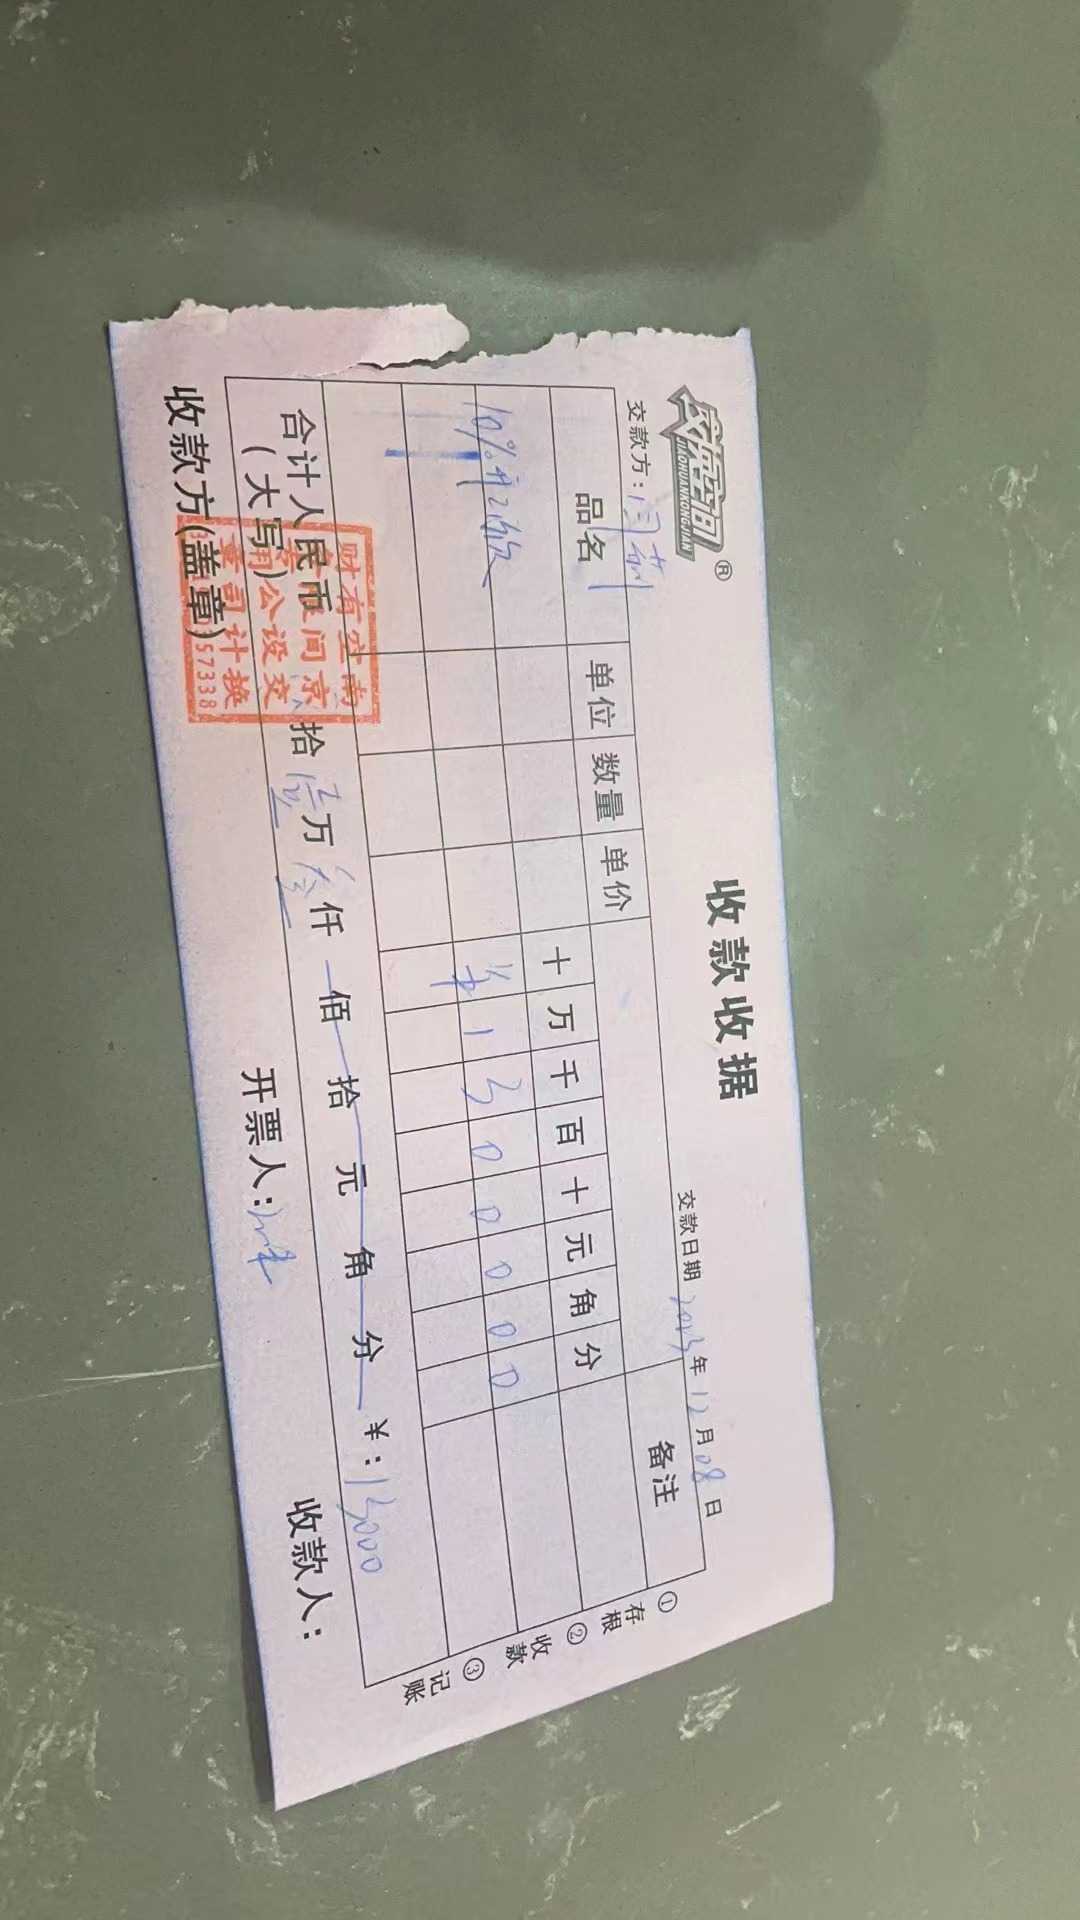 交换空间
JIAOHUANKONGJIAN ®
收款收据
交款方： 交款日期 2023年12月08日
品名 单位 数量 单价 十 万 千 百 十 元 角 分 备注
10% ¥ 1 3 0 0 0 0 0
合计人民币（大写） 拾 壹万 叁仟 佰 拾 元 角 分 ¥：13000
收款方(盖章) 开票人： 收款人：
①存根 ②收款 ③记账
南京交换
空间设计
有限公司
财务专用章
57338